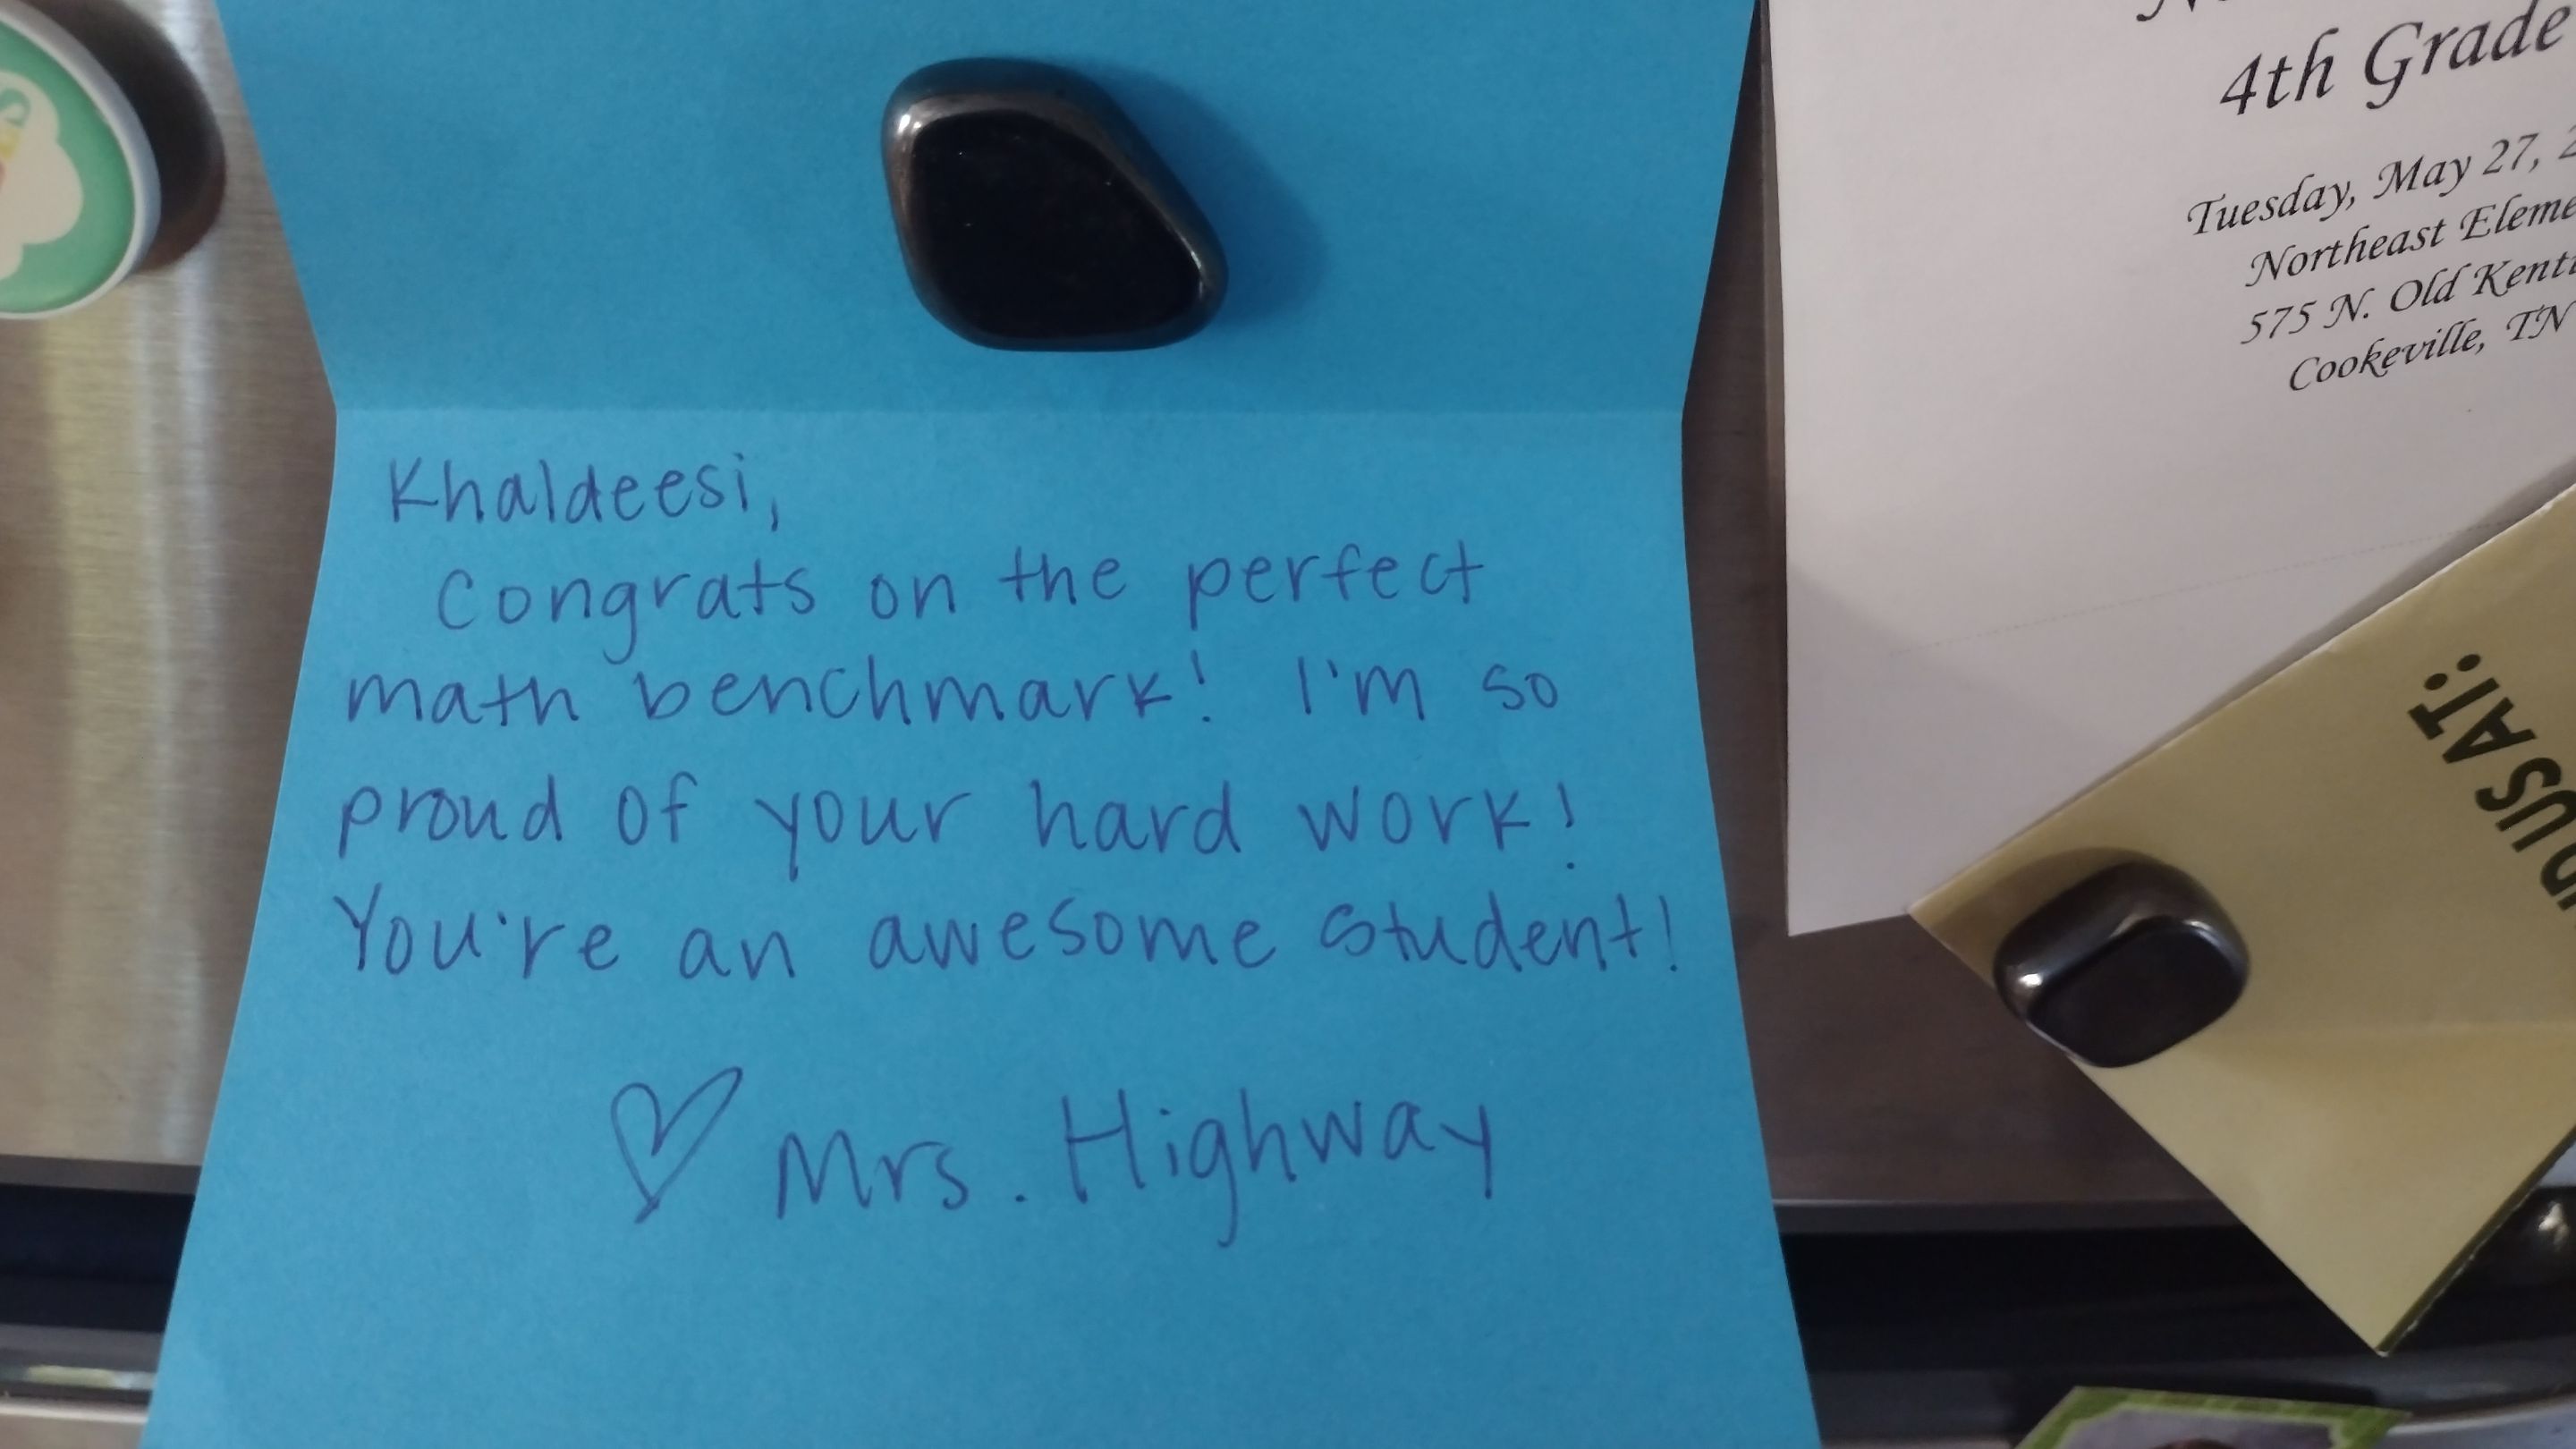 Khaldeesi,
Congrats on the perfect
math benchmark! I'm so
proud of your hard work!
You're an awesome student!
Mrs. Highway
4th Grade
Tuesday, May 27,
Northeast
575 N. Old
Cookeville, TN
US AT: